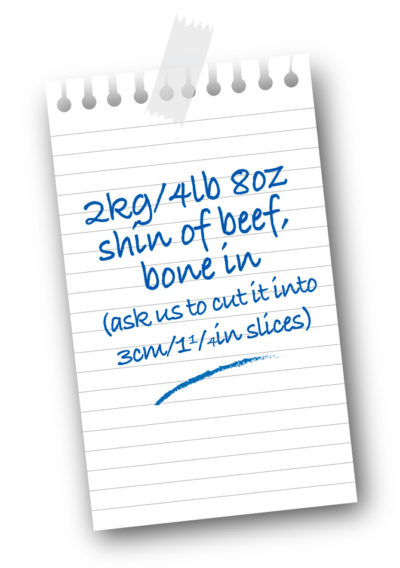 2kg/4lb 8oz
shin of beef,
bone in
(ask us to cut it into
3cm/1¼in slices)